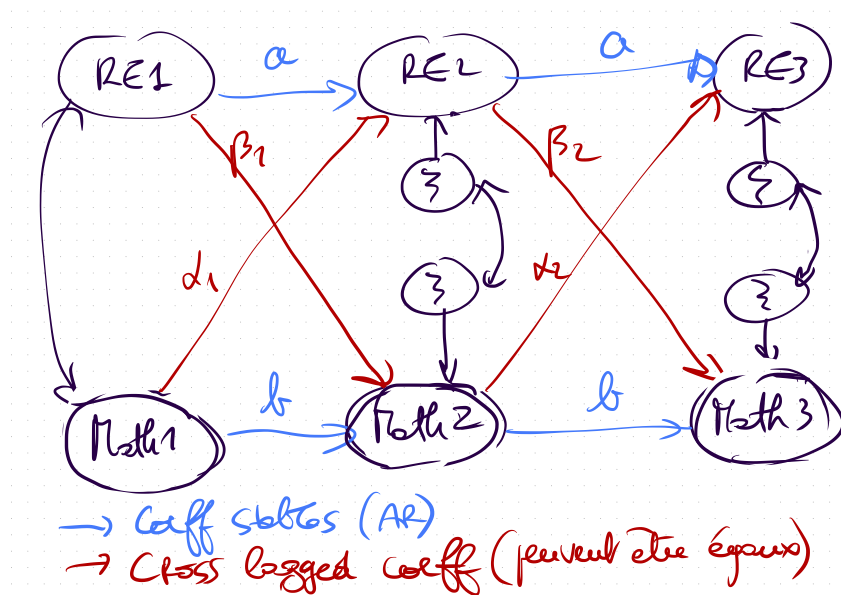 RE1 a RE2 a RE3
β1 β2
ξ ξ
α1 α2
ξ ξ
Math1 b Math2 b Math3
→ Coeff stables (AR)
→ Cross lagged coeff (peuvent etre égaux)